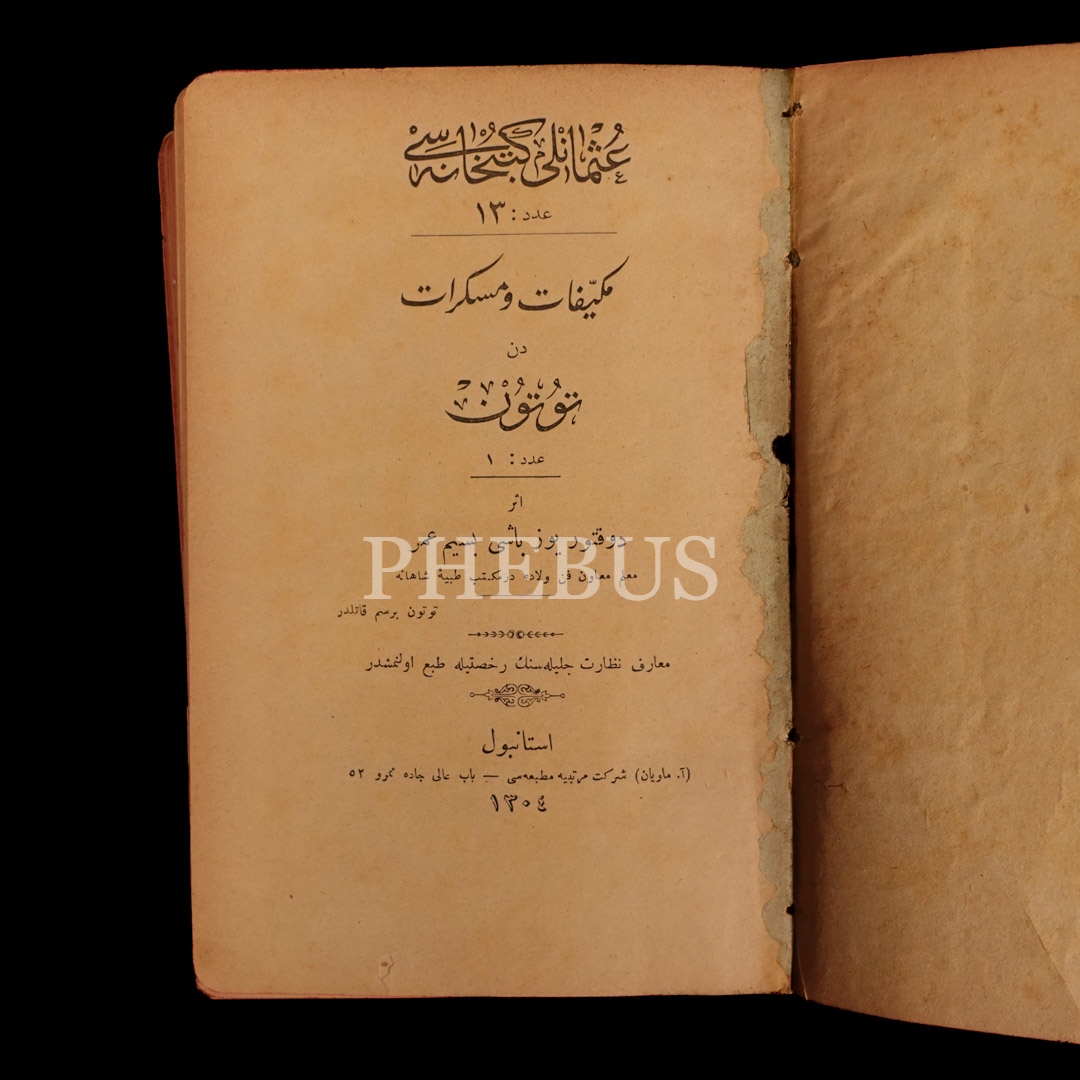 عثمانلی كتبخانه‌سی
عدد : ١٣
مكيّفات ومسكرات
دن
توتون
عدد : ١
اثر
دوقتور يوز باشی بسيم عمر
PHEBUS
معلم معاون فن ولاده در مكتب طبيهٔ شاهانه
توتون برسم قاتلدر
معارف نظارت جليله‌سنك رخصتيله طبع اولنمشدر
استانبول
(آ. ماويان) شركت مرتبيه مطبعه‌سی — باب عالی جاده نمرو ٥٢
١٣٠٤